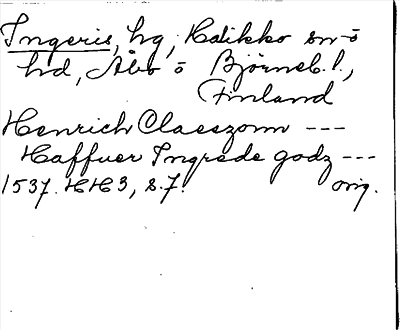 Ingeris, hg, Halikko sn o
hd, Åbo o Björneb. l.,
Finland
Henrich Claeszonn ---
Haffuer Ingrede godz ---
1537. HH3, s. 7. orig.